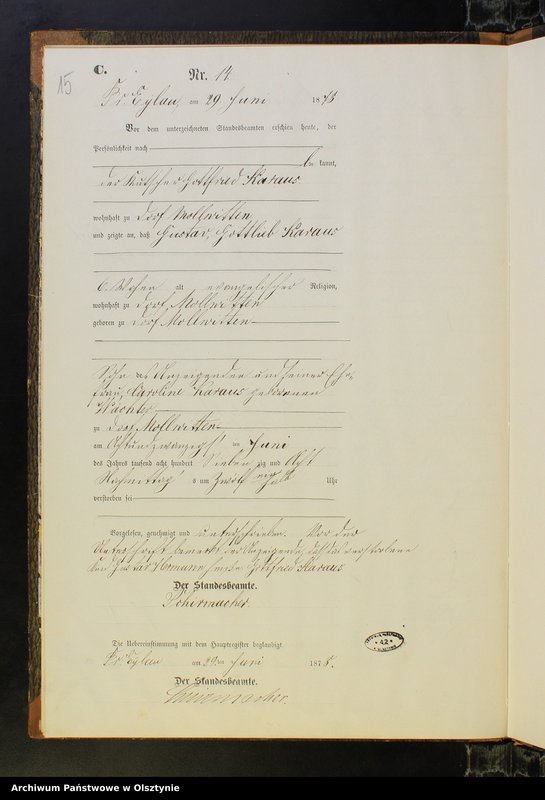 15
C.
Nr. 14.
Pr. Eylau, am 29. Juni 1878
Vor dem unterzeichneten Standesbeamten erschien heute, der
Persönlichkeit nach
be kannt,
der Kutscher Gottfried Karaus
wohnhaft zu Dorf Mollwitten
und zeigte an, daß Gustav, Gottlieb Karaus
6. Wochen alt evangelischer Religion,
wohnhaft zu Dorf Mollwitten
geboren zu Dorf Mollwitten
Sohn des Anzeigenden und seiner Ehe-
frau, Caroline Karaus geborenen
Wachter
zu Dorf Mollwitten
am Achtundzwanzigst en Juni
des Jahres tausend acht hundert Sieben zig und Acht
Nachmittag s um Zwölf ein halb Uhr
verstorben sei
Vorgelesen, genehmigt und unterschrieben. Vor der
Unterschrift bemerkt der Anzeigende, daß das verstorbene
Gottfried Karaus
Der Standesbeamte.
Schirmacher.
Die Uebereinstimmung mit dem Hauptregister beglaubigt
Pr. Eylau am 29ten Juni 1878.
Der Standesbeamte.
Schirmacher.
42
Archiwum Państwowe w Olsztynie